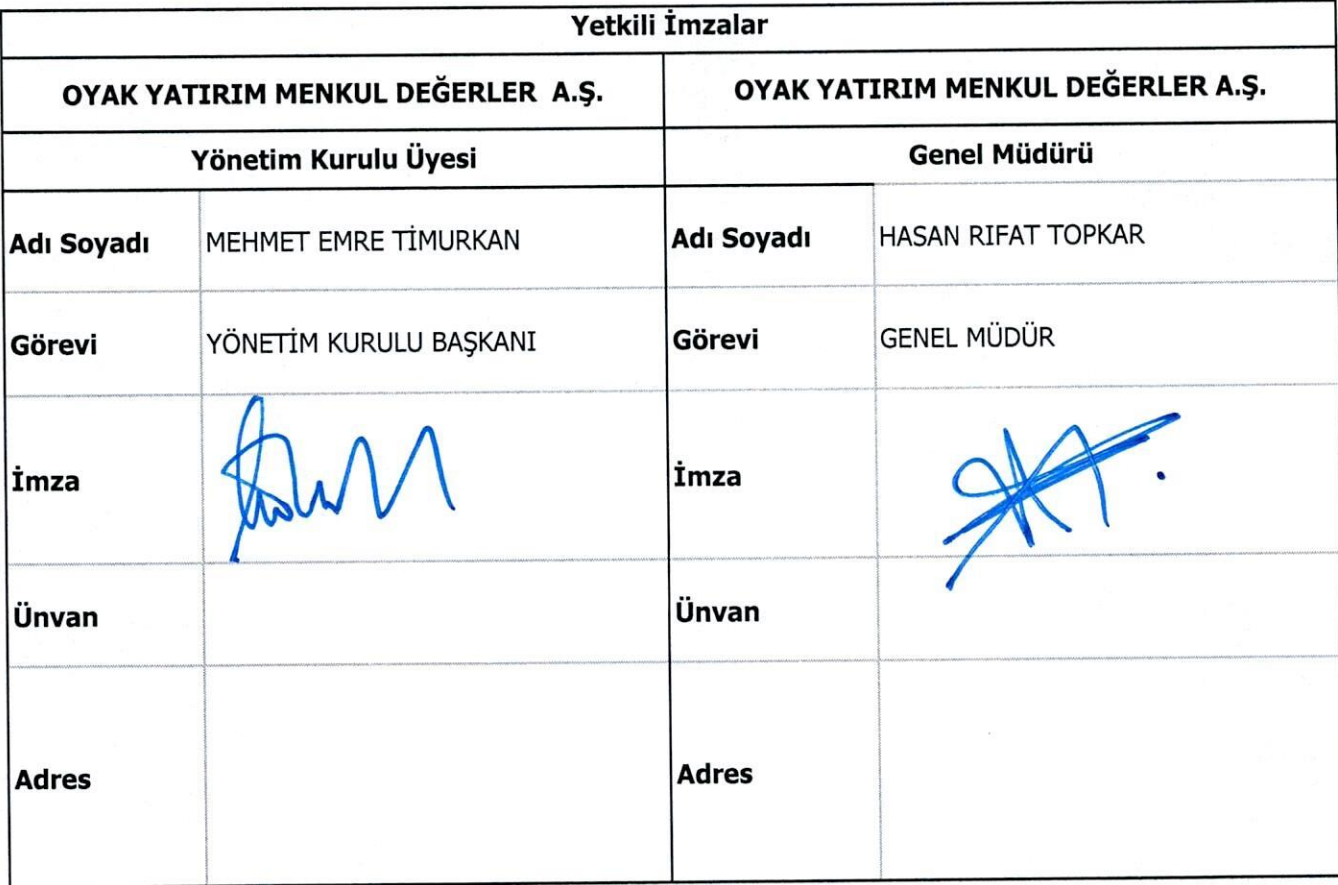 Yetkili İmzalar
OYAK YATIRIM MENKUL DEĞERLER A.Ş.
OYAK YATIRIM MENKUL DEĞERLER A.Ş.
Yönetim Kurulu Üyesi
Genel Müdürü
Adı Soyadı
MEHMET EMRE TİMURKAN
Adı Soyadı
HASAN RIFAT TOPKAR
Görevi
YÖNETİM KURULU BAŞKANI
Görevi
GENEL MÜDÜR
İmza
İmza
Ünvan
Ünvan
Adres
Adres